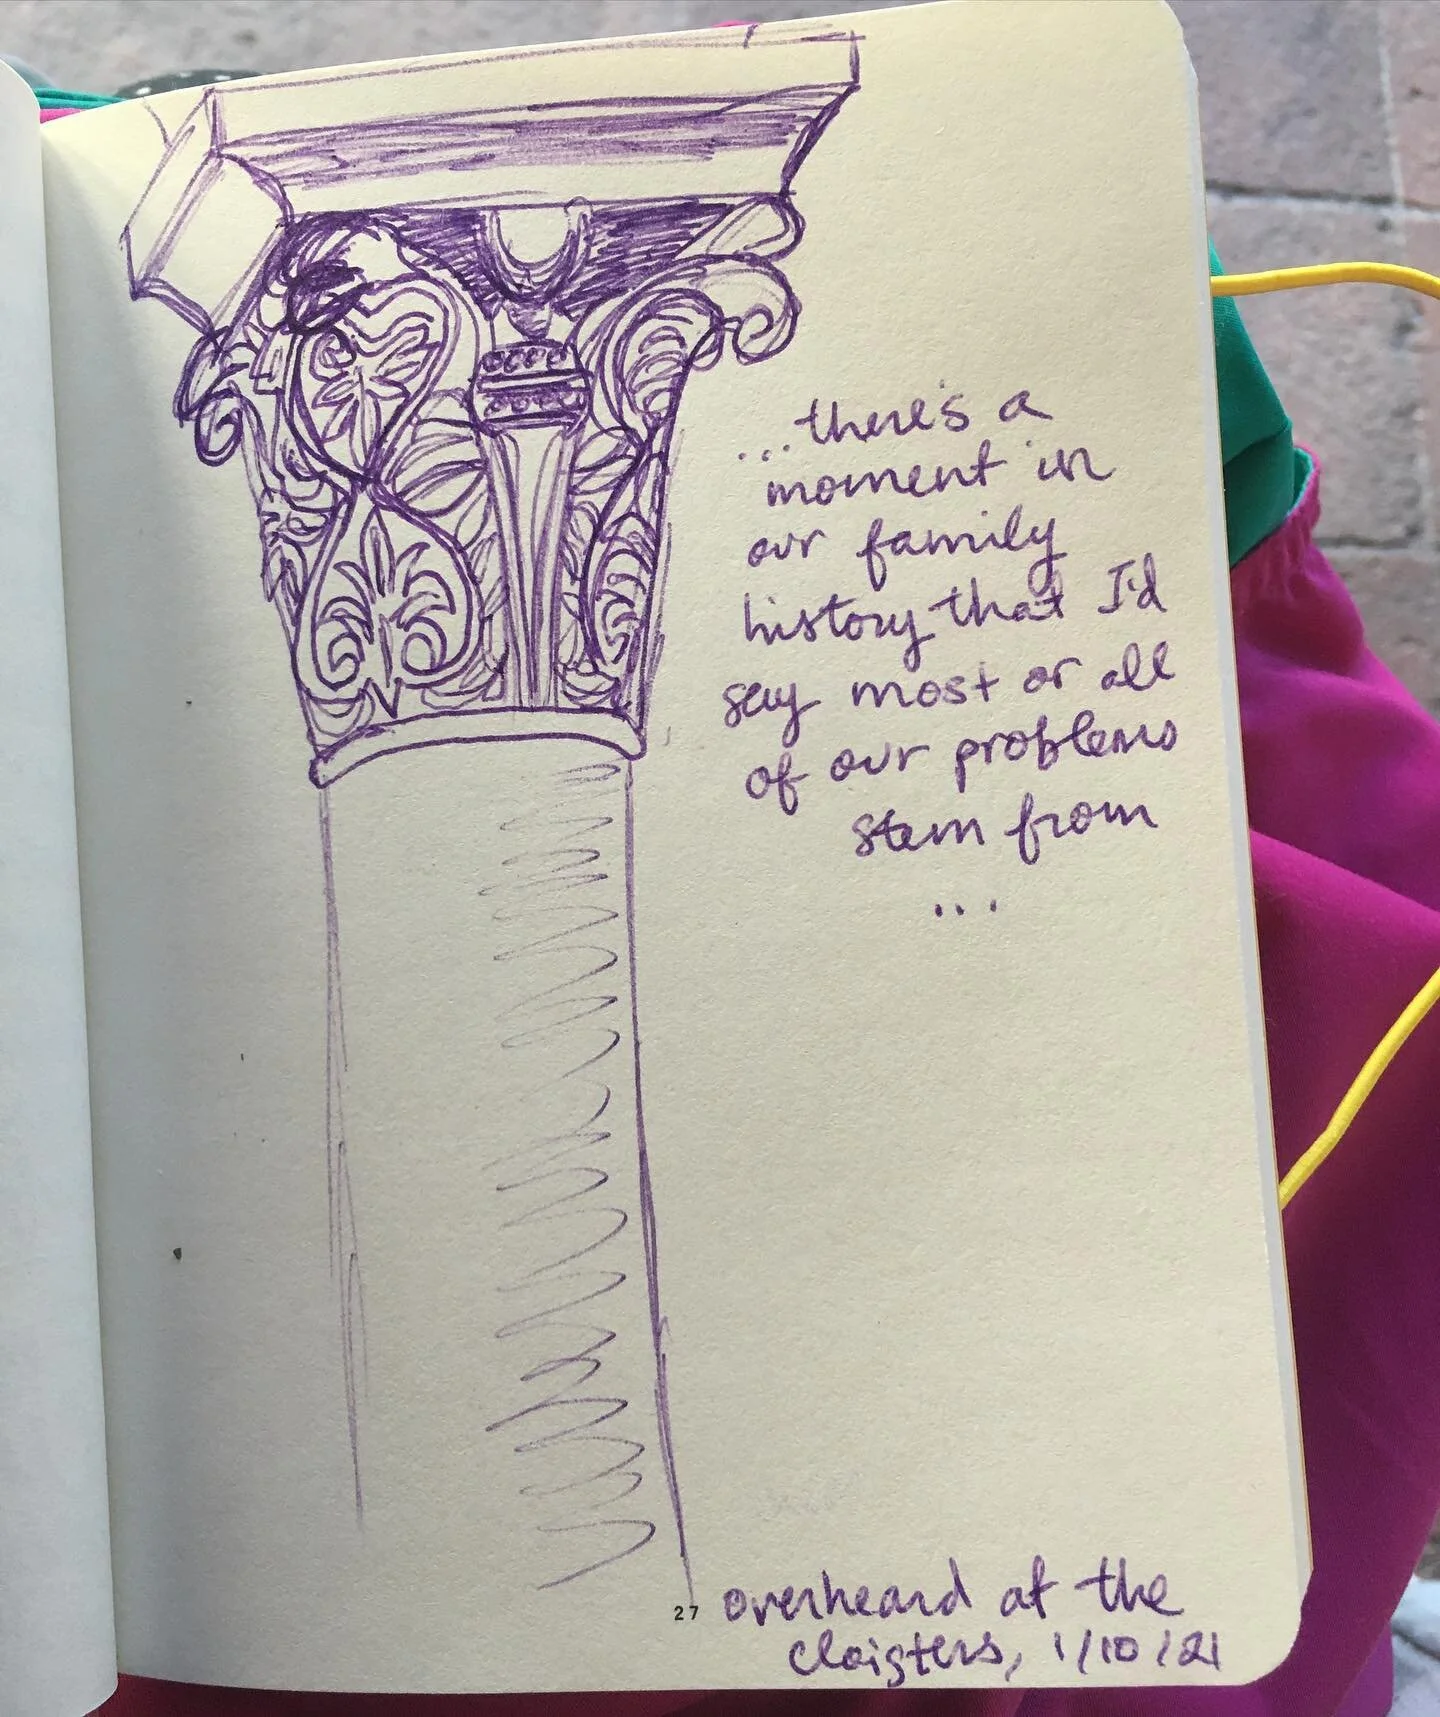 ...there's a
moment in
our family
history that I'd
say most or all
of our problems
stem from
...
27
overheard at the
cloisters, 1/10/21